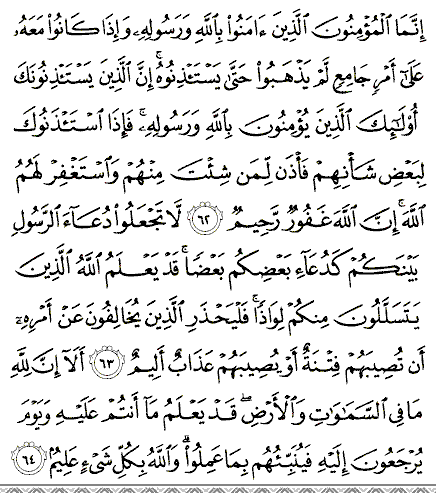 إِنَّمَا ٱلْمُؤْمِنُونَ ٱلَّذِينَ ءَامَنُوا۟ بِٱللَّهِ وَرَسُولِهِۦ وَإِذَا كَانُوا۟ مَعَهُۥ
عَلَىٰٓ أَمْرٍ جَامِعٍ لَّمْ يَذْهَبُوا۟ حَتَّىٰ يَسْتَـْٔذِنُوهُ ۚ إِنَّ ٱلَّذِينَ يَسْتَـْٔذِنُونَكَ
أُو۟لَـٰٓئِكَ ٱلَّذِينَ يُؤْمِنُونَ بِٱللَّهِ وَرَسُولِهِۦ ۚ فَإِذَا ٱسْتَـْٔذَنُوكَ
لِبَعْضِ شَأْنِهِمْ فَأْذَن لِّمَن شِئْتَ مِنْهُمْ وَٱسْتَغْفِرْ لَهُمُ
ٱللَّهَ ۚ إِنَّ ٱللَّهَ غَفُورٌ رَّحِيمٌ ٦٢ لَّا تَجْعَلُوا۟ دُعَآءَ ٱلرَّسُولِ
بَيْنَكُمْ كَدُعَآءِ بَعْضِكُم بَعْضًا ۚ قَدْ يَعْلَمُ ٱللَّهُ ٱلَّذِينَ
يَتَسَلَّلُونَ مِنكُمْ لِوَاذًا ۚ فَلْيَحْذَرِ ٱلَّذِينَ يُخَالِفُونَ عَنْ أَمْرِهِۦٓ
أَن تُصِيبَهُمْ فِتْنَةٌ أَوْ يُصِيبَهُمْ عَذَابٌ أَلِيمٌ ٦٣ أَلَآ إِنَّ لِلَّهِ
مَا فِى ٱلسَّمَـٰوَٰتِ وَٱلْأَرْضِ ۖ قَدْ يَعْلَمُ مَآ أَنتُمْ عَلَيْهِ وَيَوْمَ
يُرْجَعُونَ إِلَيْهِ فَيُنَبِّئُهُم بِمَا عَمِلُوا۟ ۗ وَٱللَّهُ بِكُلِّ شَىْءٍ عَلِيمٌۢ ٦٤